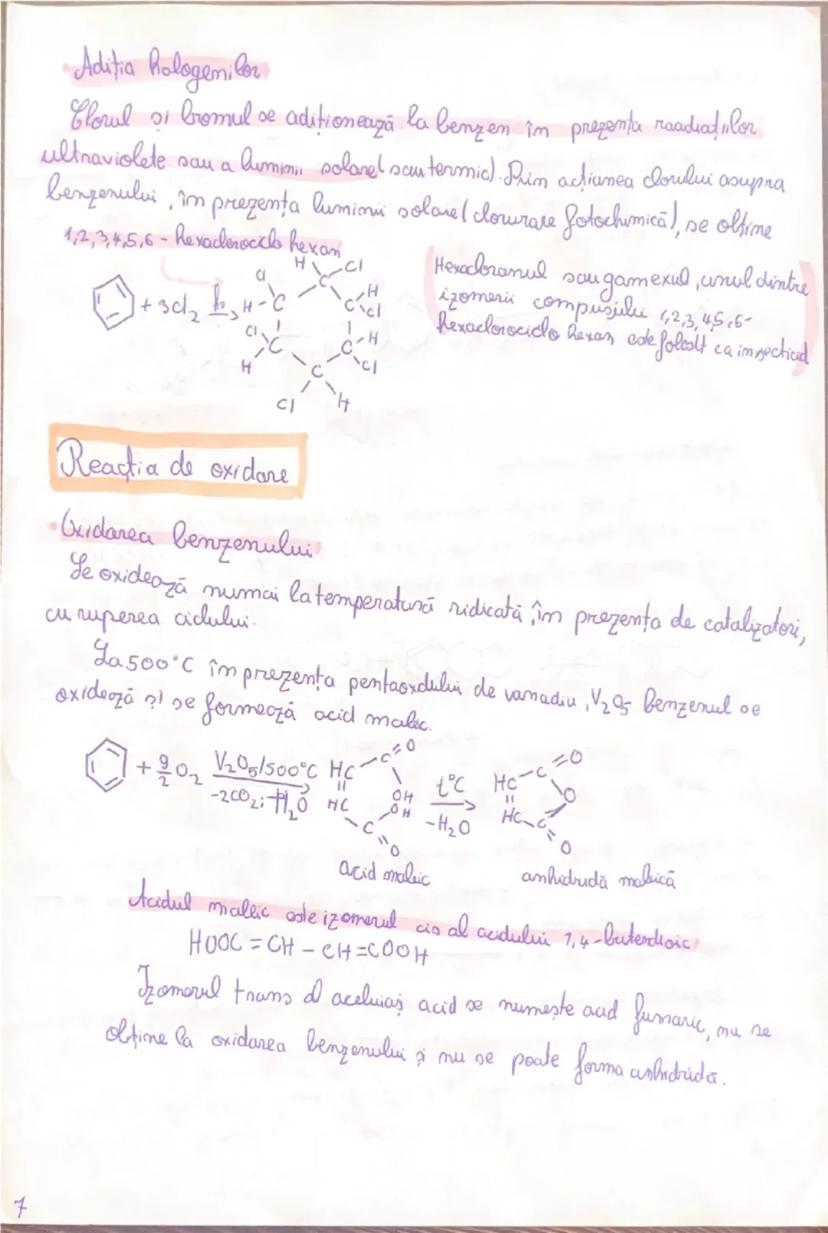 Adiția halogenilor
Clorul și bromul se adiționează la benzen în prezența raadiațiilor
ultraviolete sau a luminii solare (sau termic). Prin acțiunea clorului asupra
benzenului, în prezența luminii solare (clorurare fotochimică), se obține
1,2,3,4,5,6 - hexaclorociclo hexan
Hexacloranul sau gamexul, unul dintre
izomerii compusului 1,2,3,4,5,6-
hexaclorociclo hexan este folosit ca insecticid
+ 3Cl2 hν
H Cl
Cl
H - C C H
Cl
Cl C C - H
H Cl
C
Cl H
Reacția de oxidare
Oxidarea benzenului
Se oxidează numai la temperatură ridicată, în prezența de catalizatori,
cu ruperea ciclului.
La 500°C în prezența pentaoxidului de vanadiu, V2O5 benzenul se
oxidează și se formează acid maleic.
+ 9/2 O2 V2O5/500°C HC - C = O t°C HC - C = O
-2CO2; -H2O HC OH -H2O HC - C O
OH
C = O O
acid maleic anhidridă maleică
Acidul maleic este izomerul cis al acidului 1,4-butendioic
HOOC = CH - CH = COOH
Izomerul trans al aceluiaș acid se numește acid fumaric, nu se
obține la oxidarea benzenului și nu se poate forma anhidridă.
7